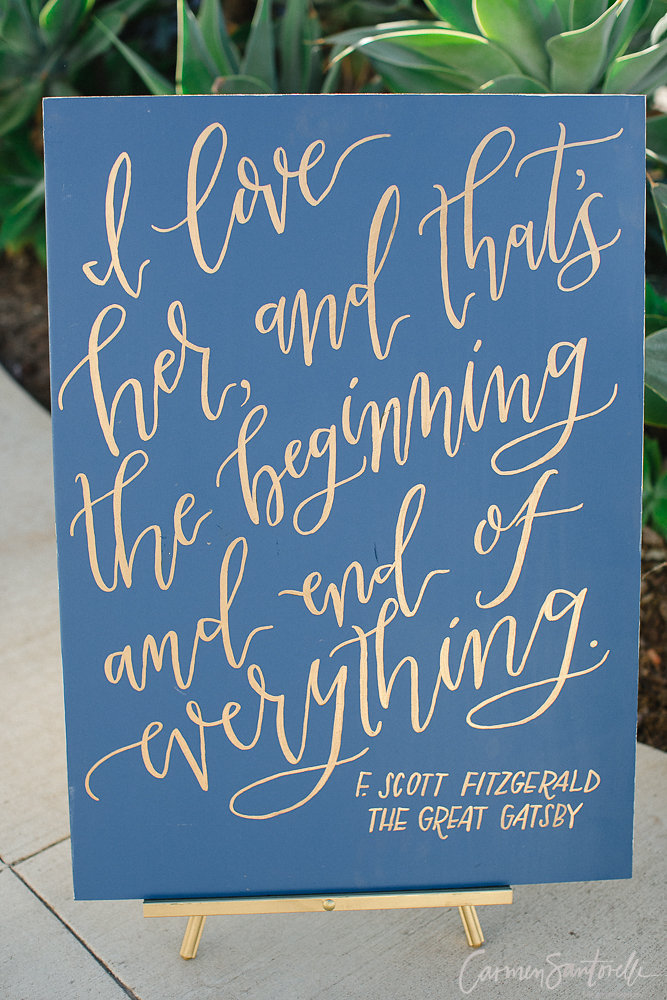 I love
her, and that's
the beginning
and end of
everything.
F. SCOTT FITZGERALD
THE GREAT GATSBY
Carmen Santorelli